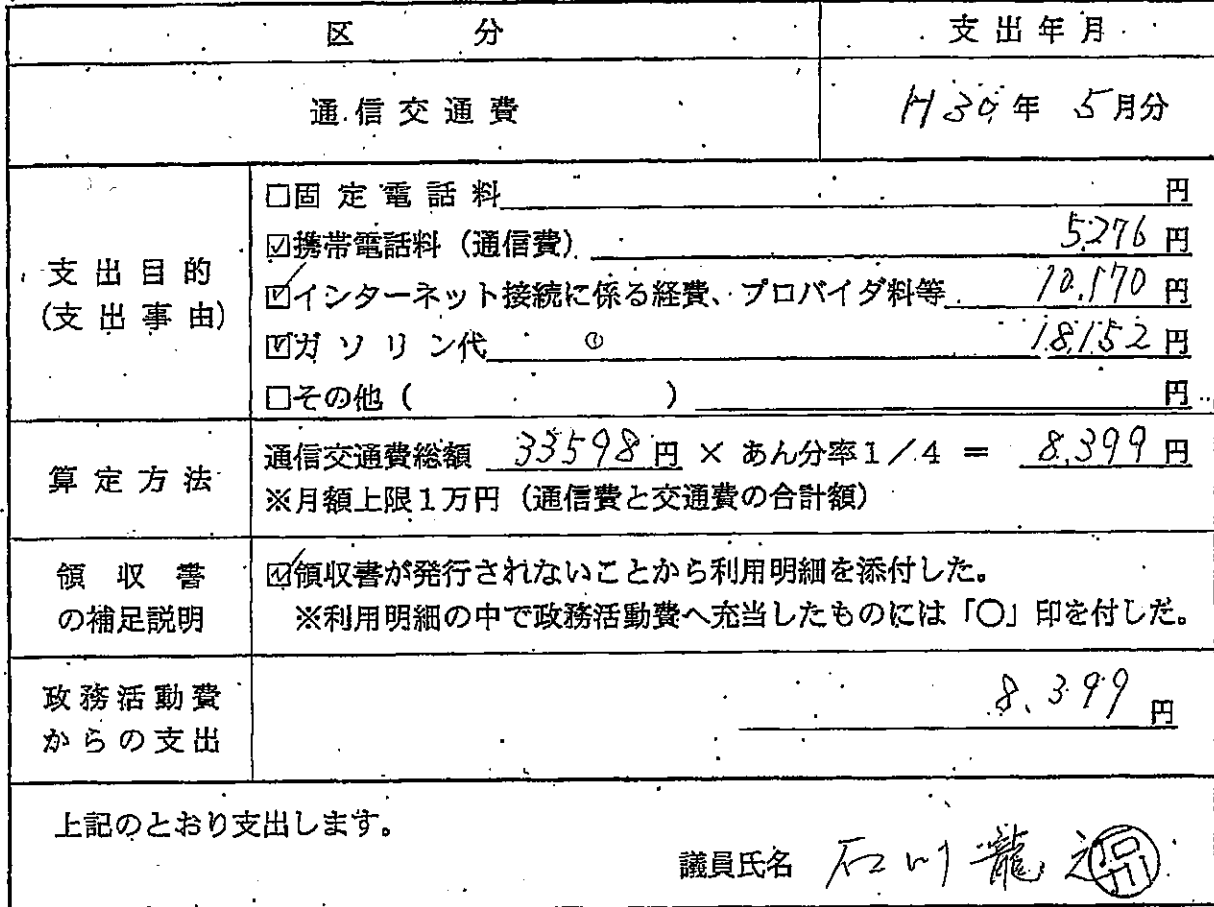 区分 支出年月
通信交通費 H30年 5月分
支出目的
(支出事由)
□固定電話料 円
☑携帯電話料（通信費） 5,276 円
☑インターネット接続に係る経費、プロバイダ料等 10,170 円
☑ガソリン代 ① 18,152 円
□その他（ ） 円
算定方法
通信交通費総額 33598 円 × あん分率1／4 ＝ 8,399 円
※月額上限1万円（通信費と交通費の合計額）
領収書
の補足説明
☑領収書が発行されないことから利用明細を添付した。
※利用明細の中で政務活動費へ充当したものには「○」印を付した。
政務活動費
からの支出
8,399 円
上記のとおり支出します。
議員氏名 石川龍之 石川